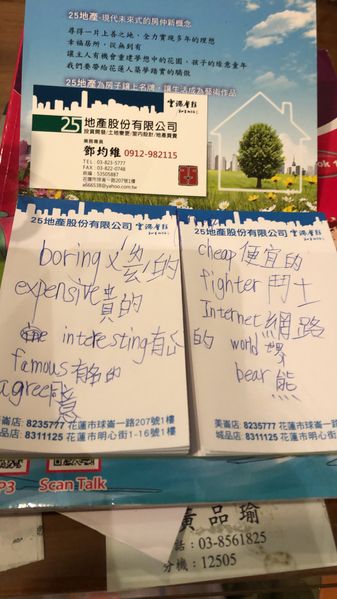 25地產-現代未來式的房仲新概念
尋得一片上善之地，全力實現多年的理想
幸福居所，從無到有
讓主人有機會重建夢想中的花園，孩子的綠意童年
我們要帶給花蓮人築夢踏實的驕傲
25地產為房子鍍上名牌，讓生活成為藝術作品
25地產股份有限公司
投資開發/土地變更/室內設計/地產買賣
業務專員
鄧均維 0912-982115
TEL：03-823-5777
FAX：03-822-0748
統編：53505887
花蓮市球崙一路207號1樓
a666538@yahoo.com.tw
25地產股份有限公司
boring 的
expensive貴的
interesting有 的
famous有名的
agree同意
美崙店: 8235777 花蓮市球崙一路207號1樓
城品店: 8311125 花蓮市明心街1-16號1樓
25地產股份有限公司
cheap便宜的
fighter鬥士
Internet網路
world
bear熊
美崙店: 8235777 花蓮市球崙一路207號1樓
城品店: 8311125 花蓮市明心街1-16號1樓
P3 Scan Talk
黃品瑜
話：03-8561825
分機：12505